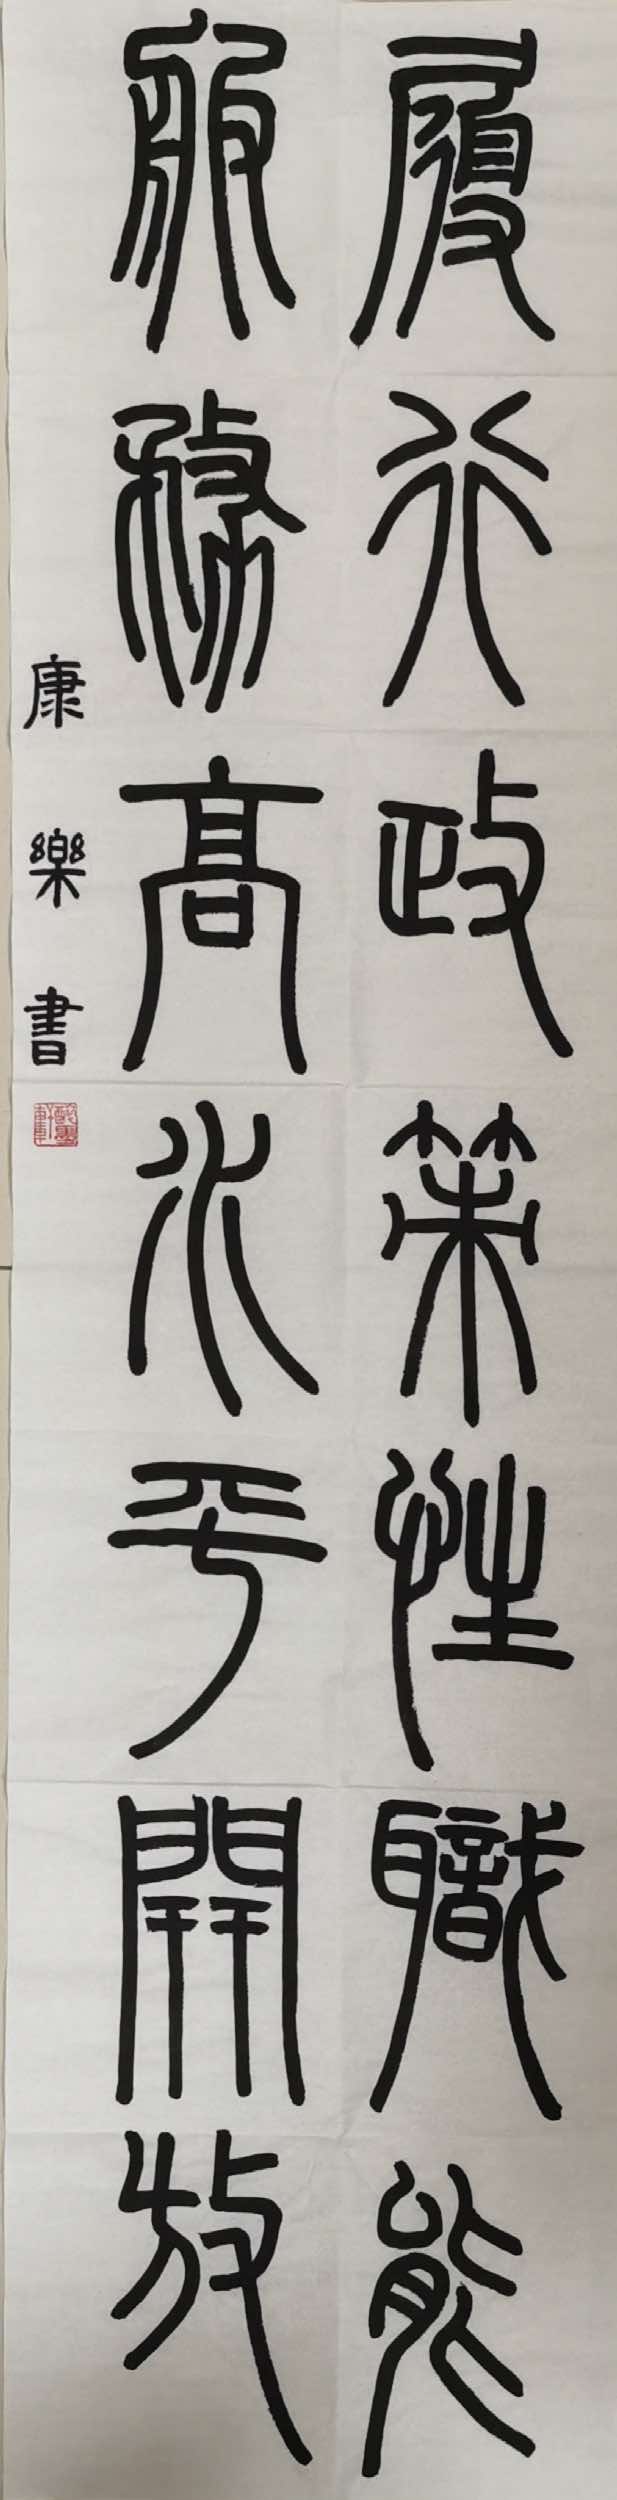 履行政策性職能
服務高水平開放
康樂書